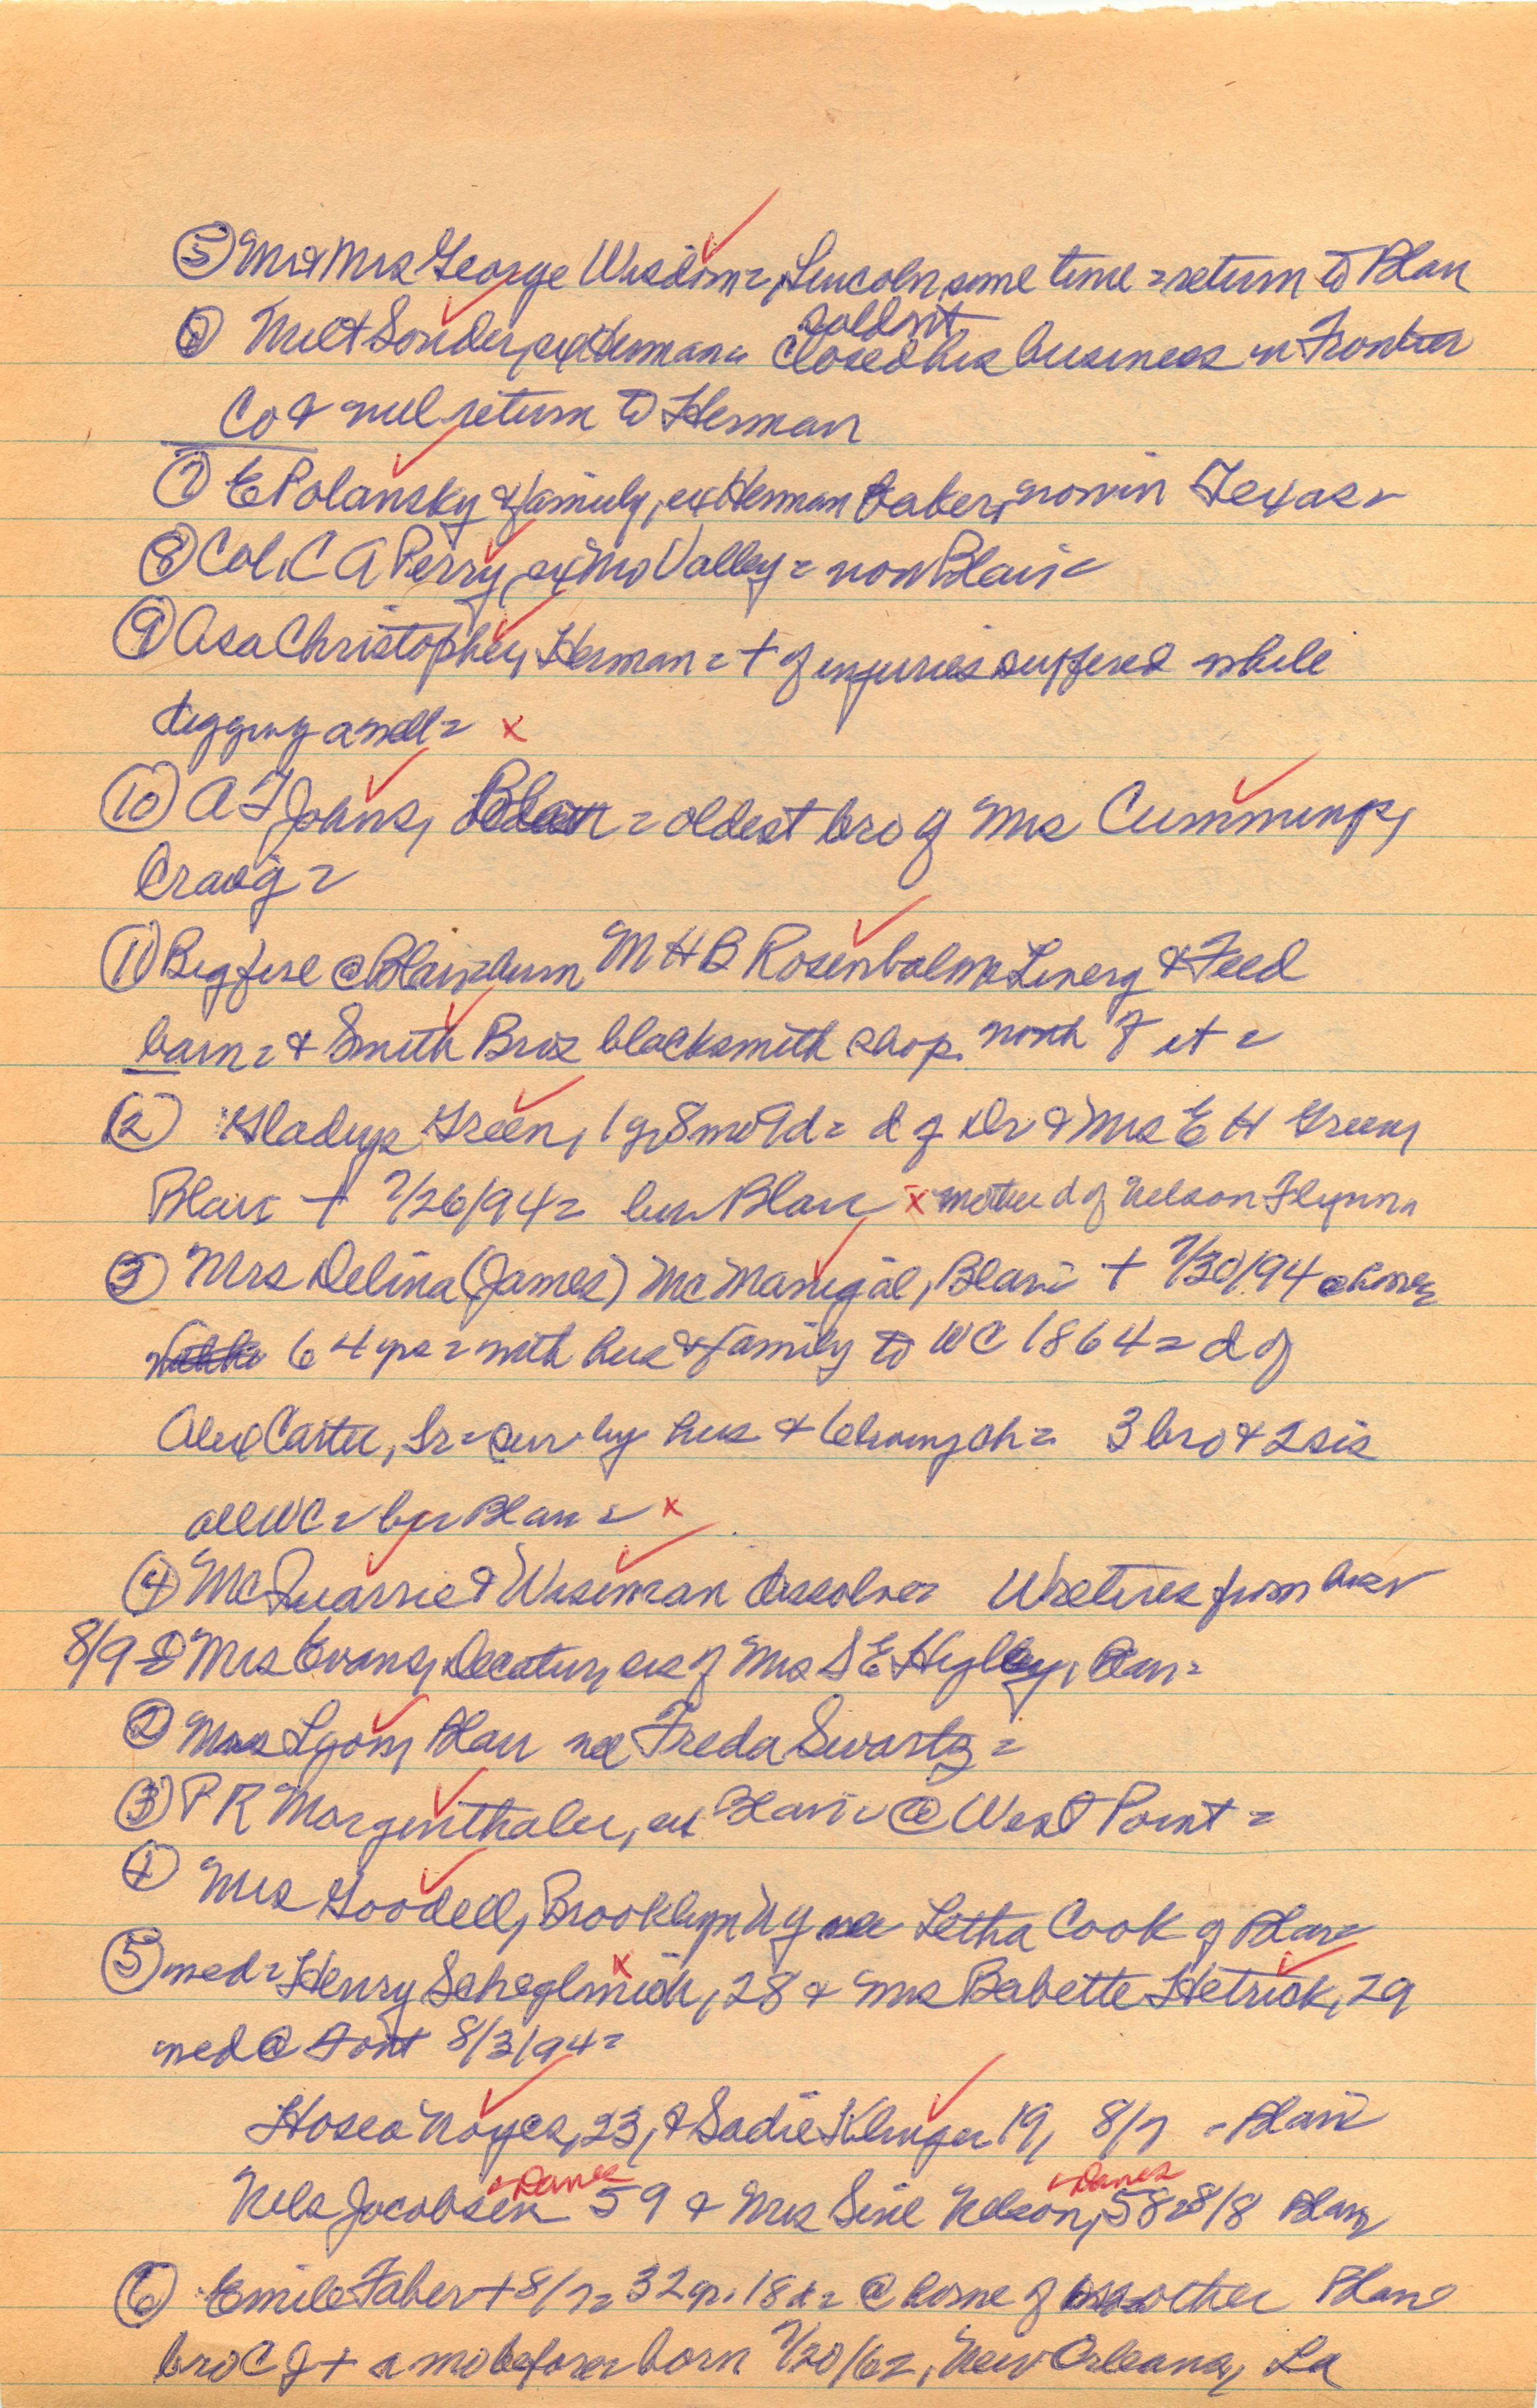 ⑤ Mr & Mrs George Wisdom = Lincoln some time = return to Blair
⑥ Milt Sonder, ex Herman = closed his business in Frontier
sold out
Co & will return to Herman
⑦ E Polansky & family, ex Herman baker, now in Texas =
⑧ Col. C A Perry, ex Mo Valley = now Blair =
⑨ Asa Christopher, Herman = + of injuries suffered while
digging a well = x
⑩ A F Johns, Blair = oldest bro of Mrs Cummings,
Craig =
⑪ Big fire @ Blair = burn M H B Rosenbalm Livery & Feed
barn = & Smith Bros blacksmith shop north of it =
⑫ Gladys Green, 1 yr 8 mo 9 d = d of Dr & Mrs E H Green,
Blair + 7/26/94 = bur Blair x mother d of Nelson Flynn
③ Mrs Delina (James) McManigal, Blair + 7/30/94 @ home
64 yrs = with hus & family to WC 1864 = d of
Alex Carter, Sr = surv by hus & 6 living ch = 3 bro & 2 sis
all WC = bur Blair = x
④ McQuarrie & Wiseman dissolve = W retires from bus =
8/9 = ① Mrs Evans, Decatur, sis of Mrs S E Hylley, Blair =
② Mrs Lyons, Blair nee Freda Swartz =
③ P R Morgenthaler, ex Blair = @ West Point =
④ Mrs Goodell, Brooklyn NY nee Letha Cook of Blair =
⑤ med = Henry Scheglmich, 28 & Mrs Babette Hetrick, 29
med @ Font 8/3/94 =
Hosea Noyes, 23, & Sadie Klinger 19, 8/7 - Blair
Nels Jacobsen 59 & Mrs Sine Nelson, 58 = 8/8 Blair
+ Danes + Danes
⑥ Emile Faber + 8/7 = 32 yr. 18 d = @ home of mother Blair
bro C J + a mo before = born 7/20/62, New Orleans, La